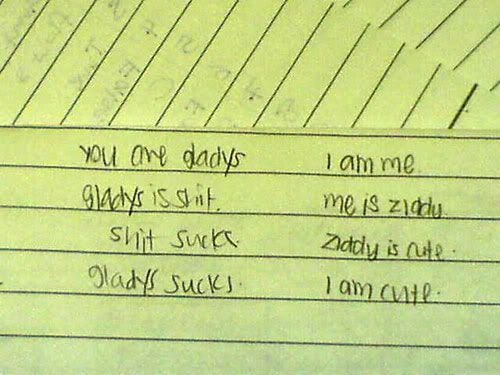 you are gladys
gladys is shit.
shit sucks.
gladys sucks.
I am me.
me is ziddy.
ziddy is cute.
I am cute.